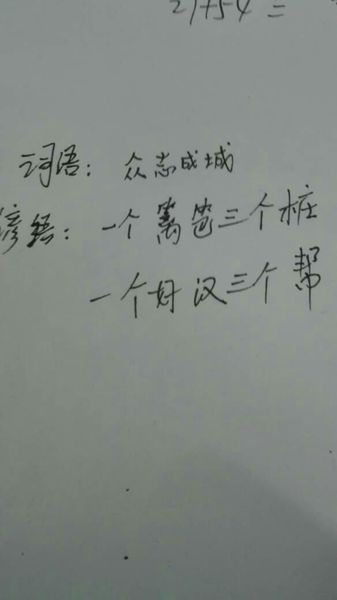 27+54=
词语：众志成城
谚语：一个篱笆三个桩
一个好汉三个帮